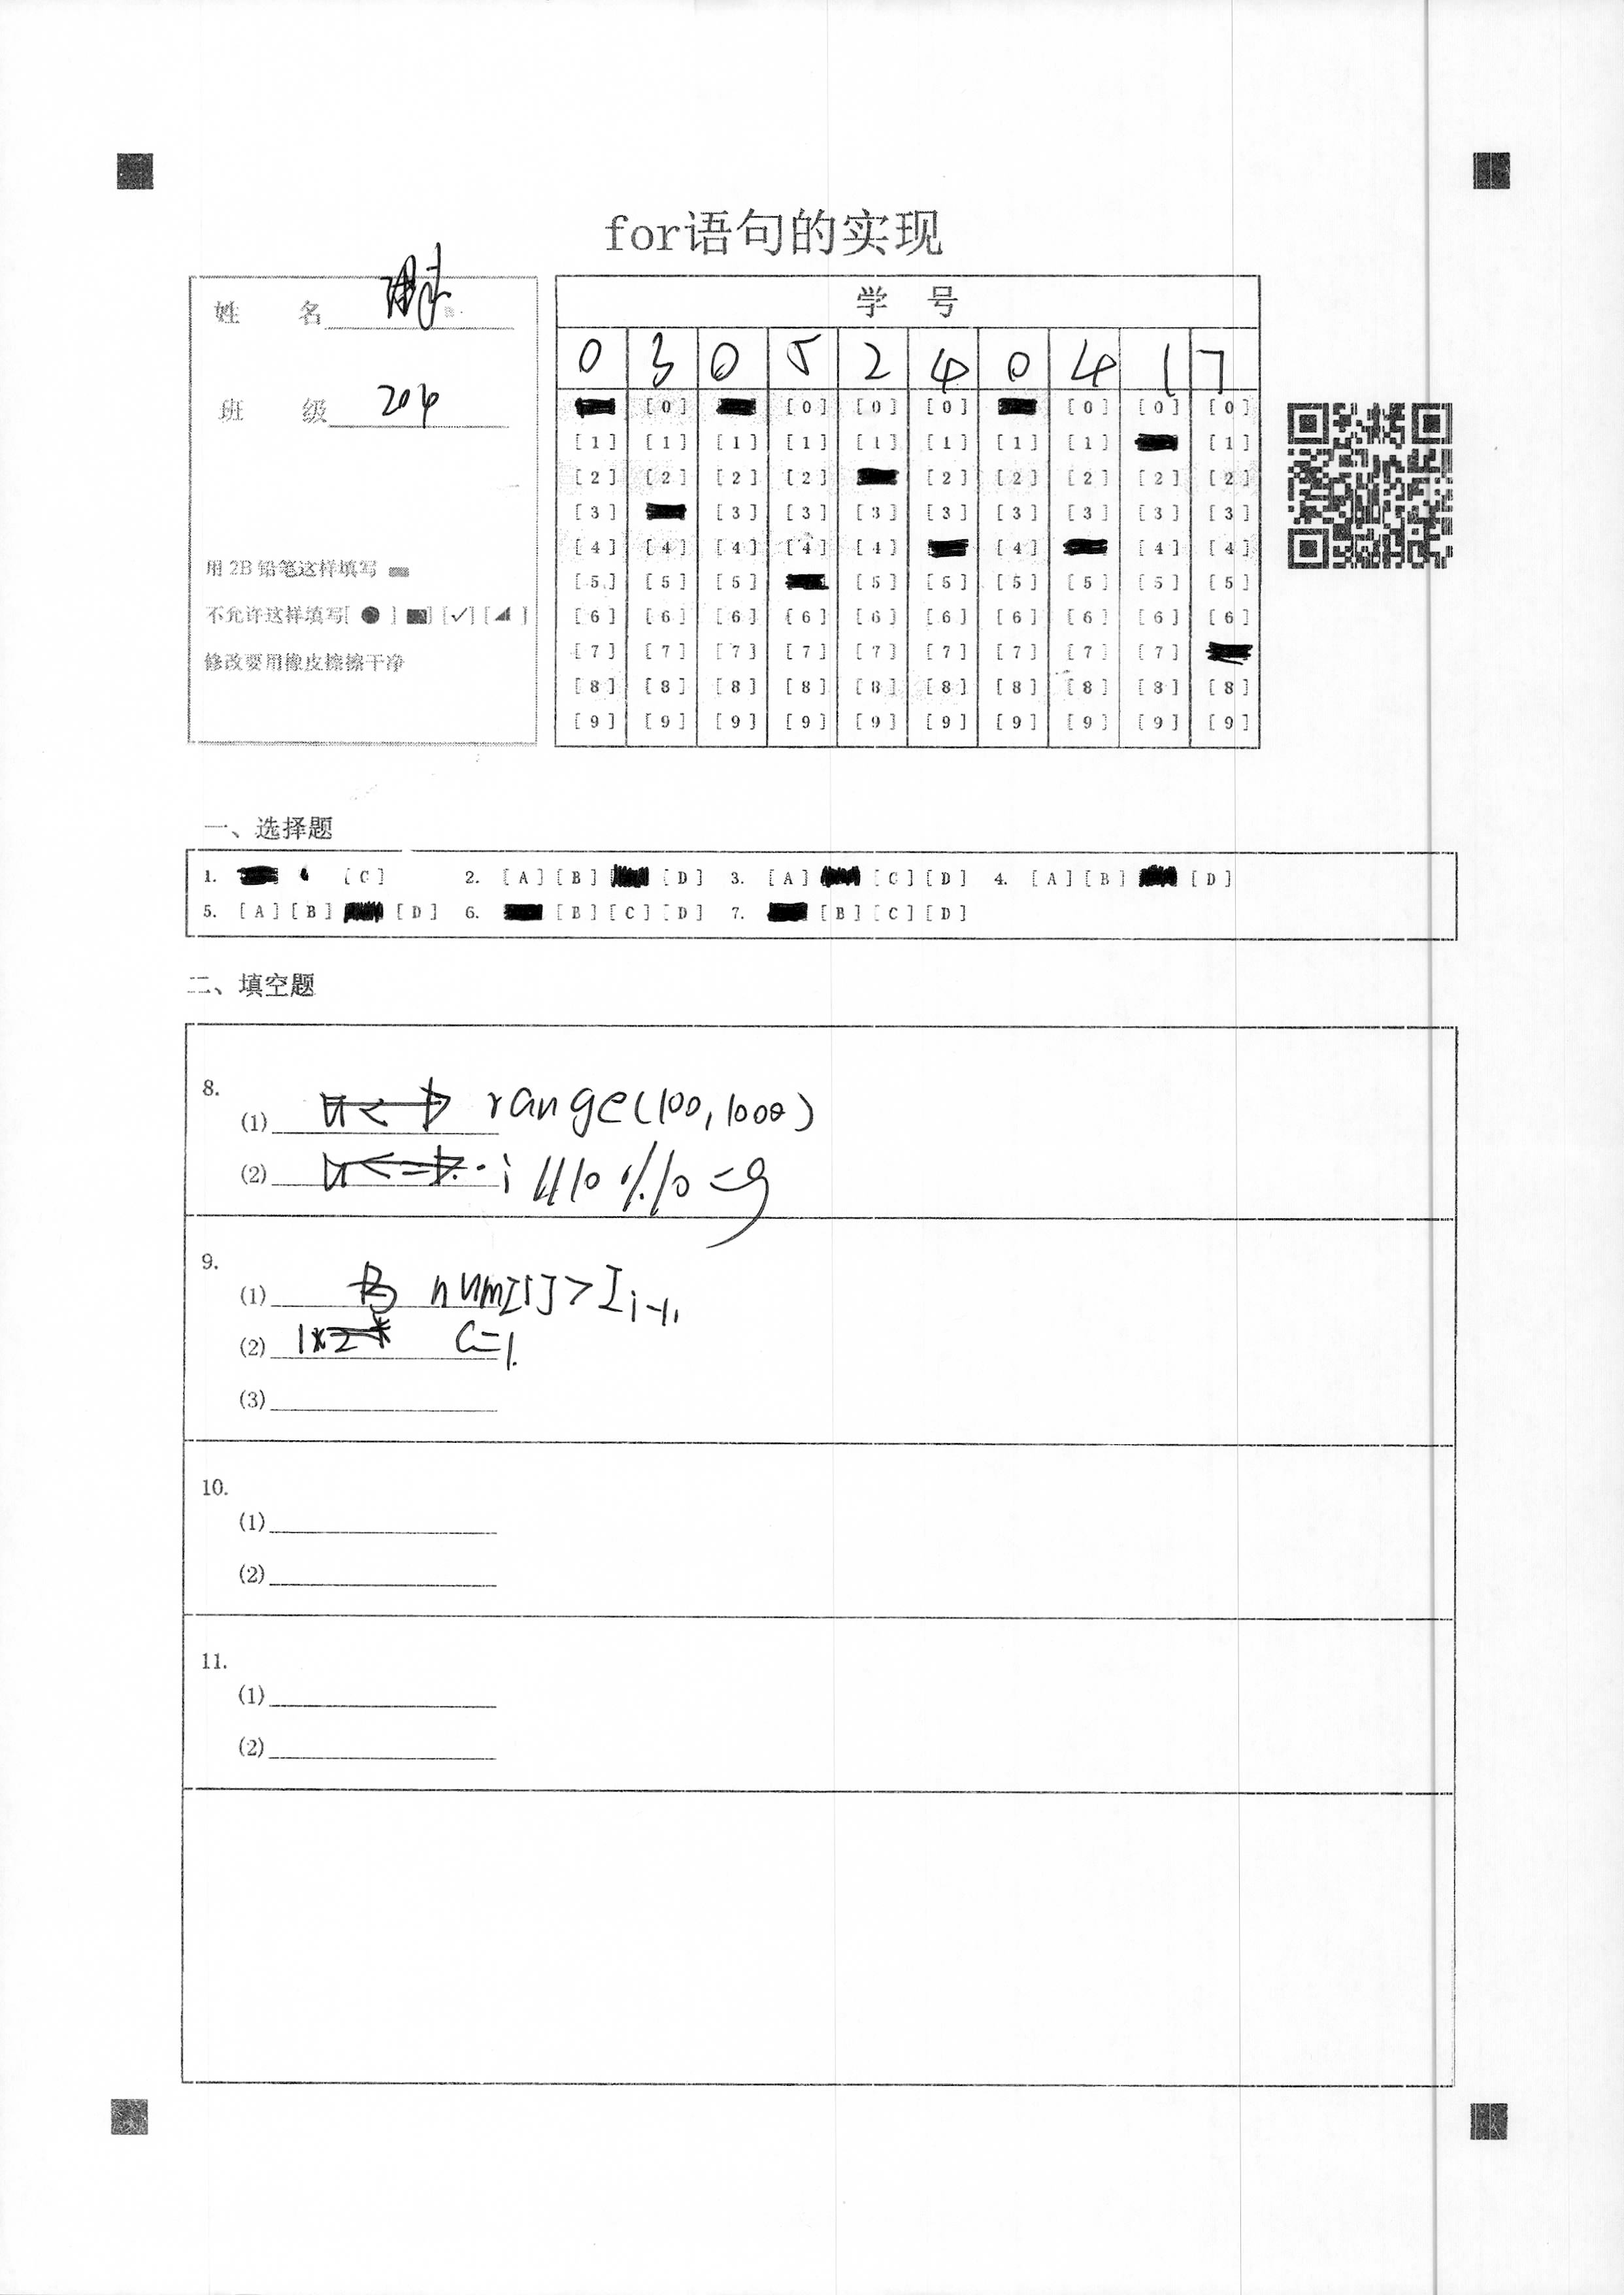 for语句的实现
姓 名
班 级 204
用 2B 铅笔这样填写
不允许这样填写[ ● ] [■] [✓] [◢ ]
修改要用橡皮擦擦干净
学 号
0 3 0 5 2 4 0 4 1 7
[0] [0] [0] [0] [0] [0] [0]
[1] [1] [1] [1] [1] [1] [1] [1] [1]
[2] [2] [2] [2] [2] [2] [2] [2] [2]
[3] [3] [3] [3] [3] [3] [3] [3] [3]
[4] [4] [4] [4] [4] [4] [4] [4]
[5] [5] [5] [5] [5] [5] [5] [5] [5]
[6] [6] [6] [6] [6] [6] [6] [6] [6] [6]
[7] [7] [7] [7] [7] [7] [7] [7] [7]
[8] [8] [8] [8] [8] [8] [8] [8] [8] [8]
[9] [9] [9] [9] [9] [9] [9] [9] [9] [9]
一、选择题
1. [C] 2. [A] [B] [D] 3. [A] [C] [D] 4. [A] [B] [D]
5. [A] [B] [D] 6. [B] [C] [D] 7. [B] [C] [D]
二、填空题
8.
(1) range(100,1000)
(2) i//10%10=9
9.
(1) num[i]>I i-1
(2) C=1
(3)
10.
(1)
(2)
11.
(1)
(2)